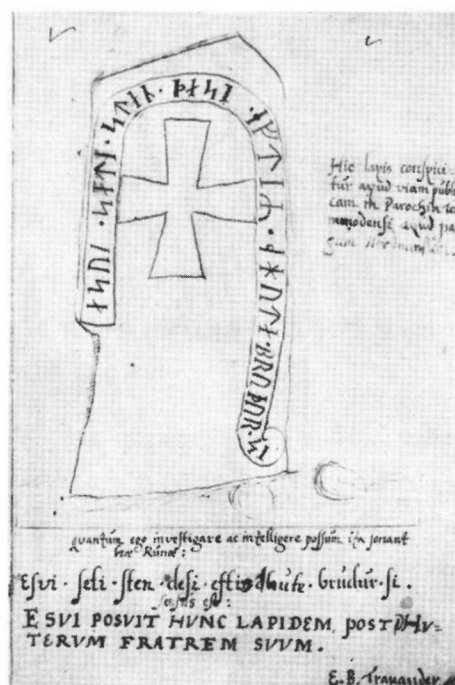 ᛋᛏᛁᚾ · ᚦᛅᛋᛁ · ᛒᚱᚢᚦᚢᚱ · ᛋᛁ
Hic lapis conspici-
tur apud viam publi
cam in Parochia
apud pa
gum
quantum ego investigare ac intelligere possum ita sonant
hæ Runæ:
Esvi · seti · sten · desi · eftir · brudur · si .
sensus est:
ESVI POSVIT HVNC LAPIDEM, POST HV-
TERVM FRATREM SVVM .
E. B. Tranander